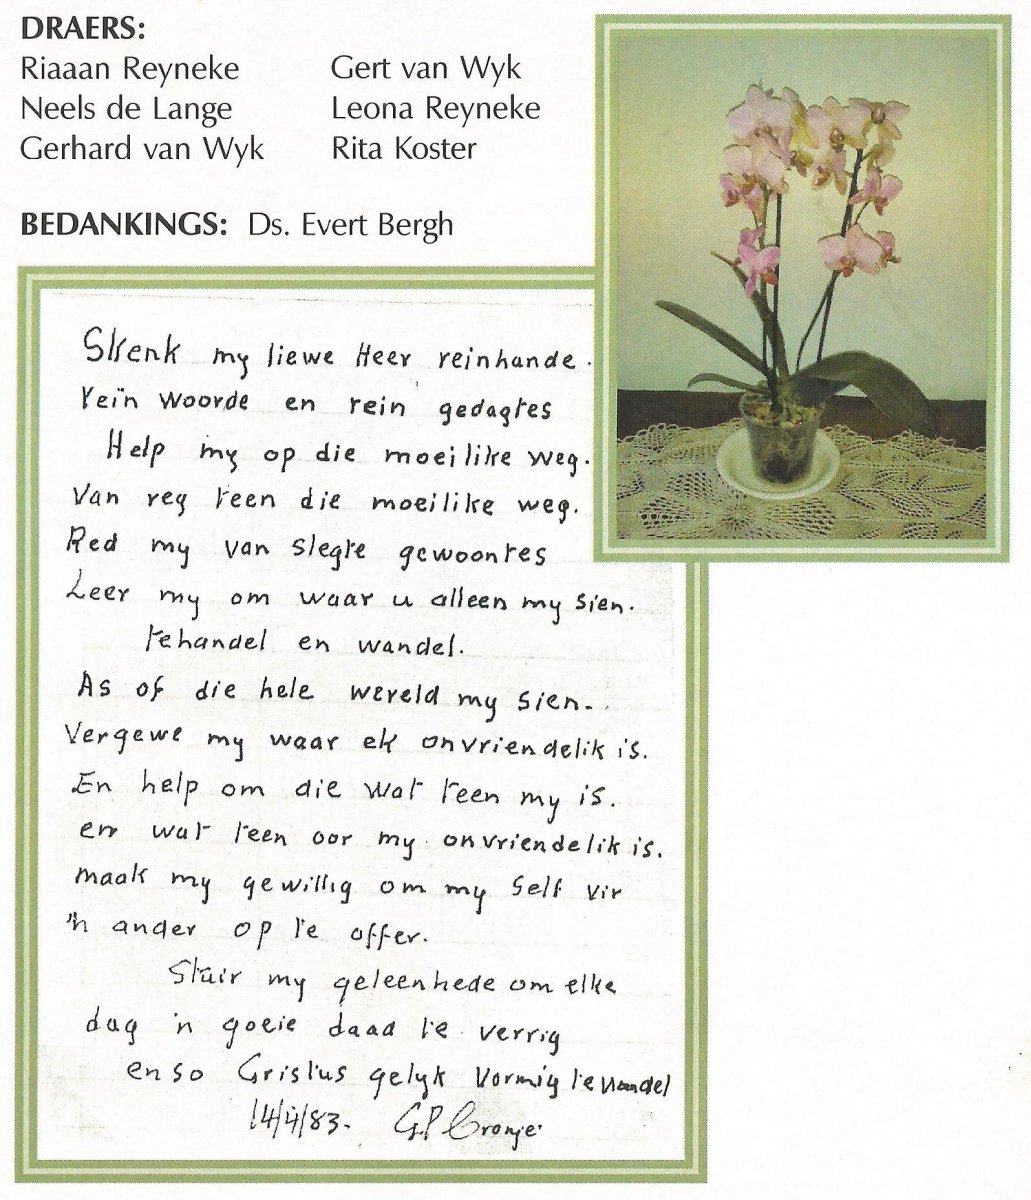 DRAERS:
Riaaan Reyneke Gert van Wyk
Neels de Lange Leona Reyneke
Gerhard van Wyk Rita Koster
BEDANKINGS: Ds. Evert Bergh
Skenk my liewe Heer reinhande.
rein woorde en rein gedagtes
Help my op die moeilike weg.
Van reg teen die moeilike weg.
Red my van slegte gewoontes
Leer my om waar u alleen my sien.
tehandel en wandel.
As of die hele wereld my sien.
Vergewe my waar ek onvriendelik is.
En help om die wat teen my is.
en wat teen oor my onvriendelik is.
maak my gewillig om my self vir
'n ander op te offer.
Stuir my geleenhede om elke
dag 'n goeie daad te verrig
enso Gristus gelyk vormig te wandel
14/4/83. G.P Cronje